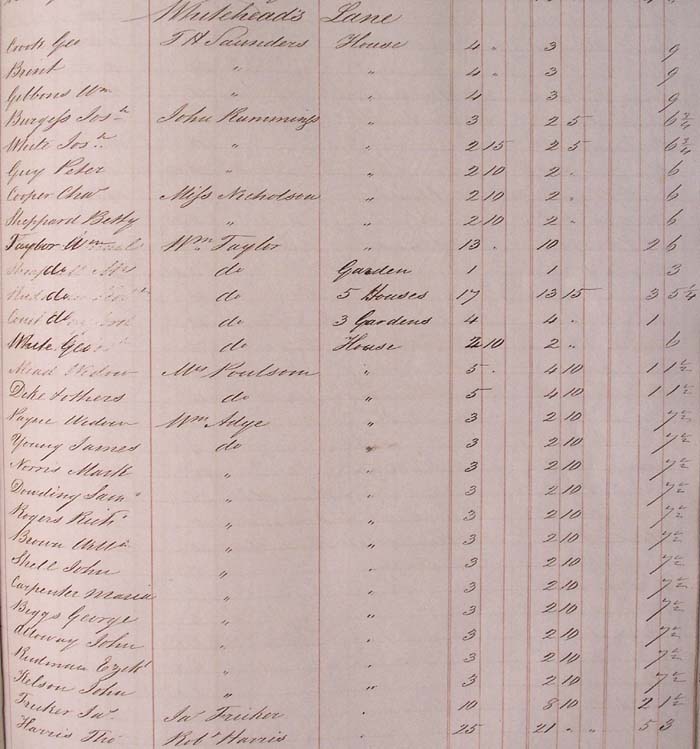 Whitehead's Lane
Cook Geo T H Saunders House 4 " 3 9
Brent " " 4 " 3 9
Gibbons Wm " " 4 3 9
Burgess Josh John Rummings " 3 2 5 6 3/4
White Josh " " 2 15 2 5 6 3/4
Guy Peter " " 2 10 2 " 6
Cooper Chas Miss Nicholson " 2 10 2 " 6
Sheppard Betty " " 2 10 2 " 6
Taylor Wm Wm Taylor " 13 " 10 2 6
do do Garden 1 1 3
do do 5 Houses 17 13 15 3 5 1/4
do do 3 Gardens 4 4 " 1
White Geo do House 2 10 2 " 6
Mead Widow Mrs Poulsom " 5 " 4 10 1 1 1/2
Deke & others do " 5 4 10 1 1 1/2
Payne Widow Wm Adye " 3 2 10 7 1/2
Young James do " 3 2 10 7 1/2
Norris Mark " " 3 2 10 7 1/2
Dowding Saml " " 3 2 10 7 1/2
Rogers Richd " " 3 2 10 7 1/2
Brown Willm " " 3 2 10 7 1/2
Shell John " " 3 2 10 7 1/2
Carpenter Maria " " 3 2 10 7 1/2
Biggs George " " 3 2 10 7 1/2
Alloway John " " 3 2 10 7 1/2
Rudman Ezekl " " 3 2 10 7 1/2
Kelson John " " 3 2 10 7 1/2
Fricker Jas Jas Fricker " 10 8 10 2 1 1/2
Harris Thos Robt Harris " 25 21 " " 5 3